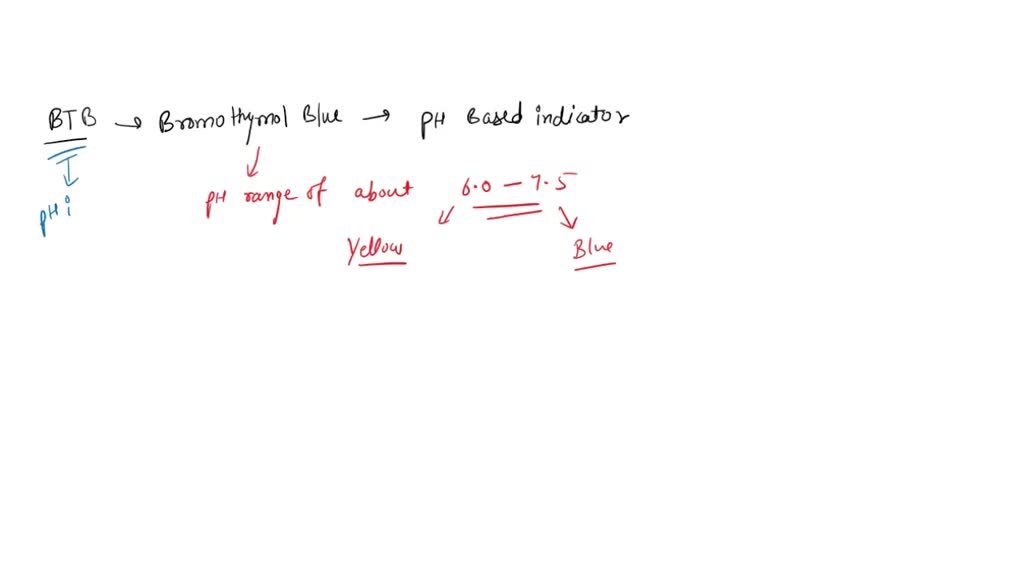 BTB → Bromothymol Blue → pH Based indicator
pH i
pH range of about 6.0 – 7.5
Yellow Blue